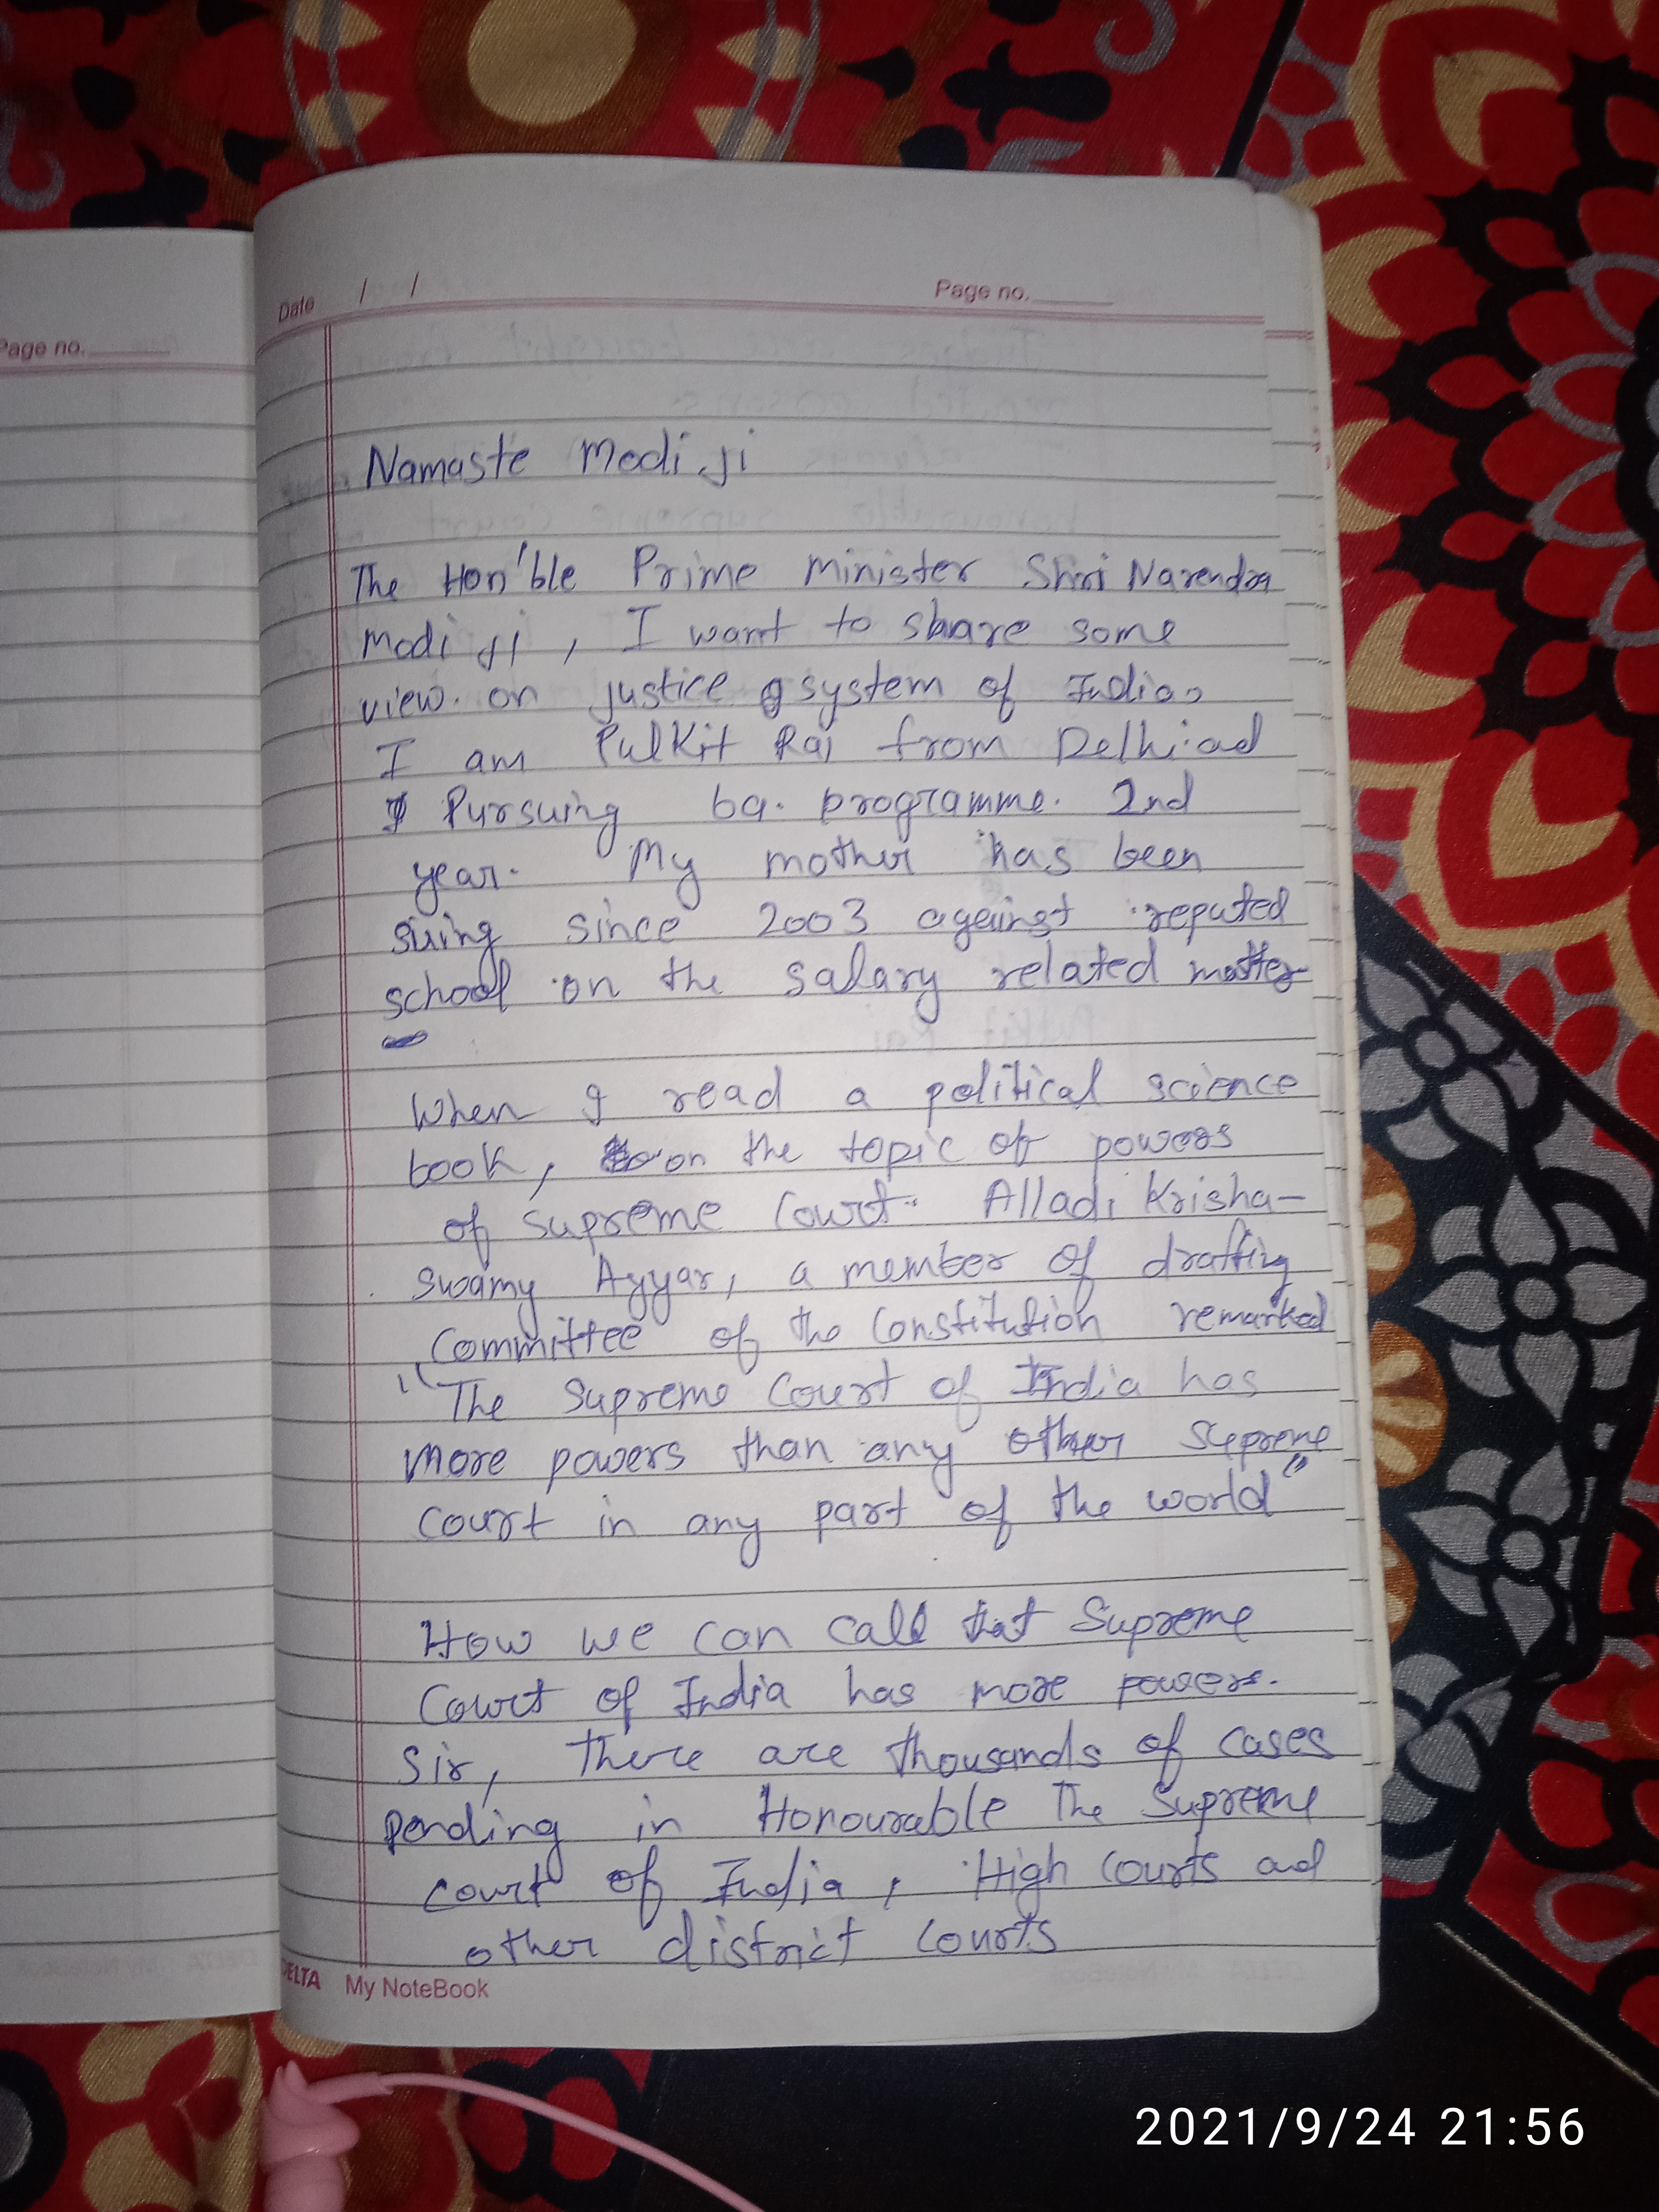 Page no.
Date / /
Page no.
Namaste Modi Ji
The Hon'ble Prime Minister Shri Narendra
Modi Ji, I want to share some
view. on justice system of India,
I am Pulkit Rai from Delhi. ad
Pursuing ba. programme. 2nd
year. My mother has been
suing since 2003 against reputed
school on the salary related matter
When I read a political science
book, on the topic of powers
of supreme Court. Alladi Krisha-
swamy Ayyar, a member of drafting
Committee of the Constitution remarked
"The Supreme Court of India has
more powers than any other Supreme
Court in any part of the world"
How we can call that Supreme
Court of India has more powers.
Sir, there are thousands of cases
Pending in Honourable The Supreme
Court of India, High Courts and
other district Courts
DELTA My NoteBook
2021/9/24 21:56